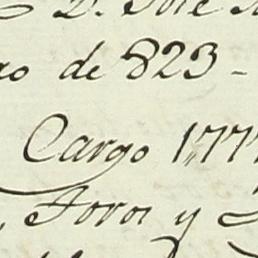 D. José
de 823 -
Cargo 1777
, Foros y